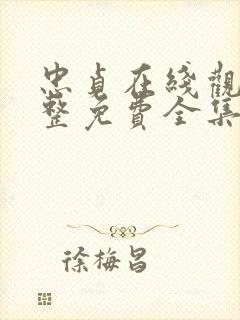 忠貞在綫觀
整免費全集
徐梅昌